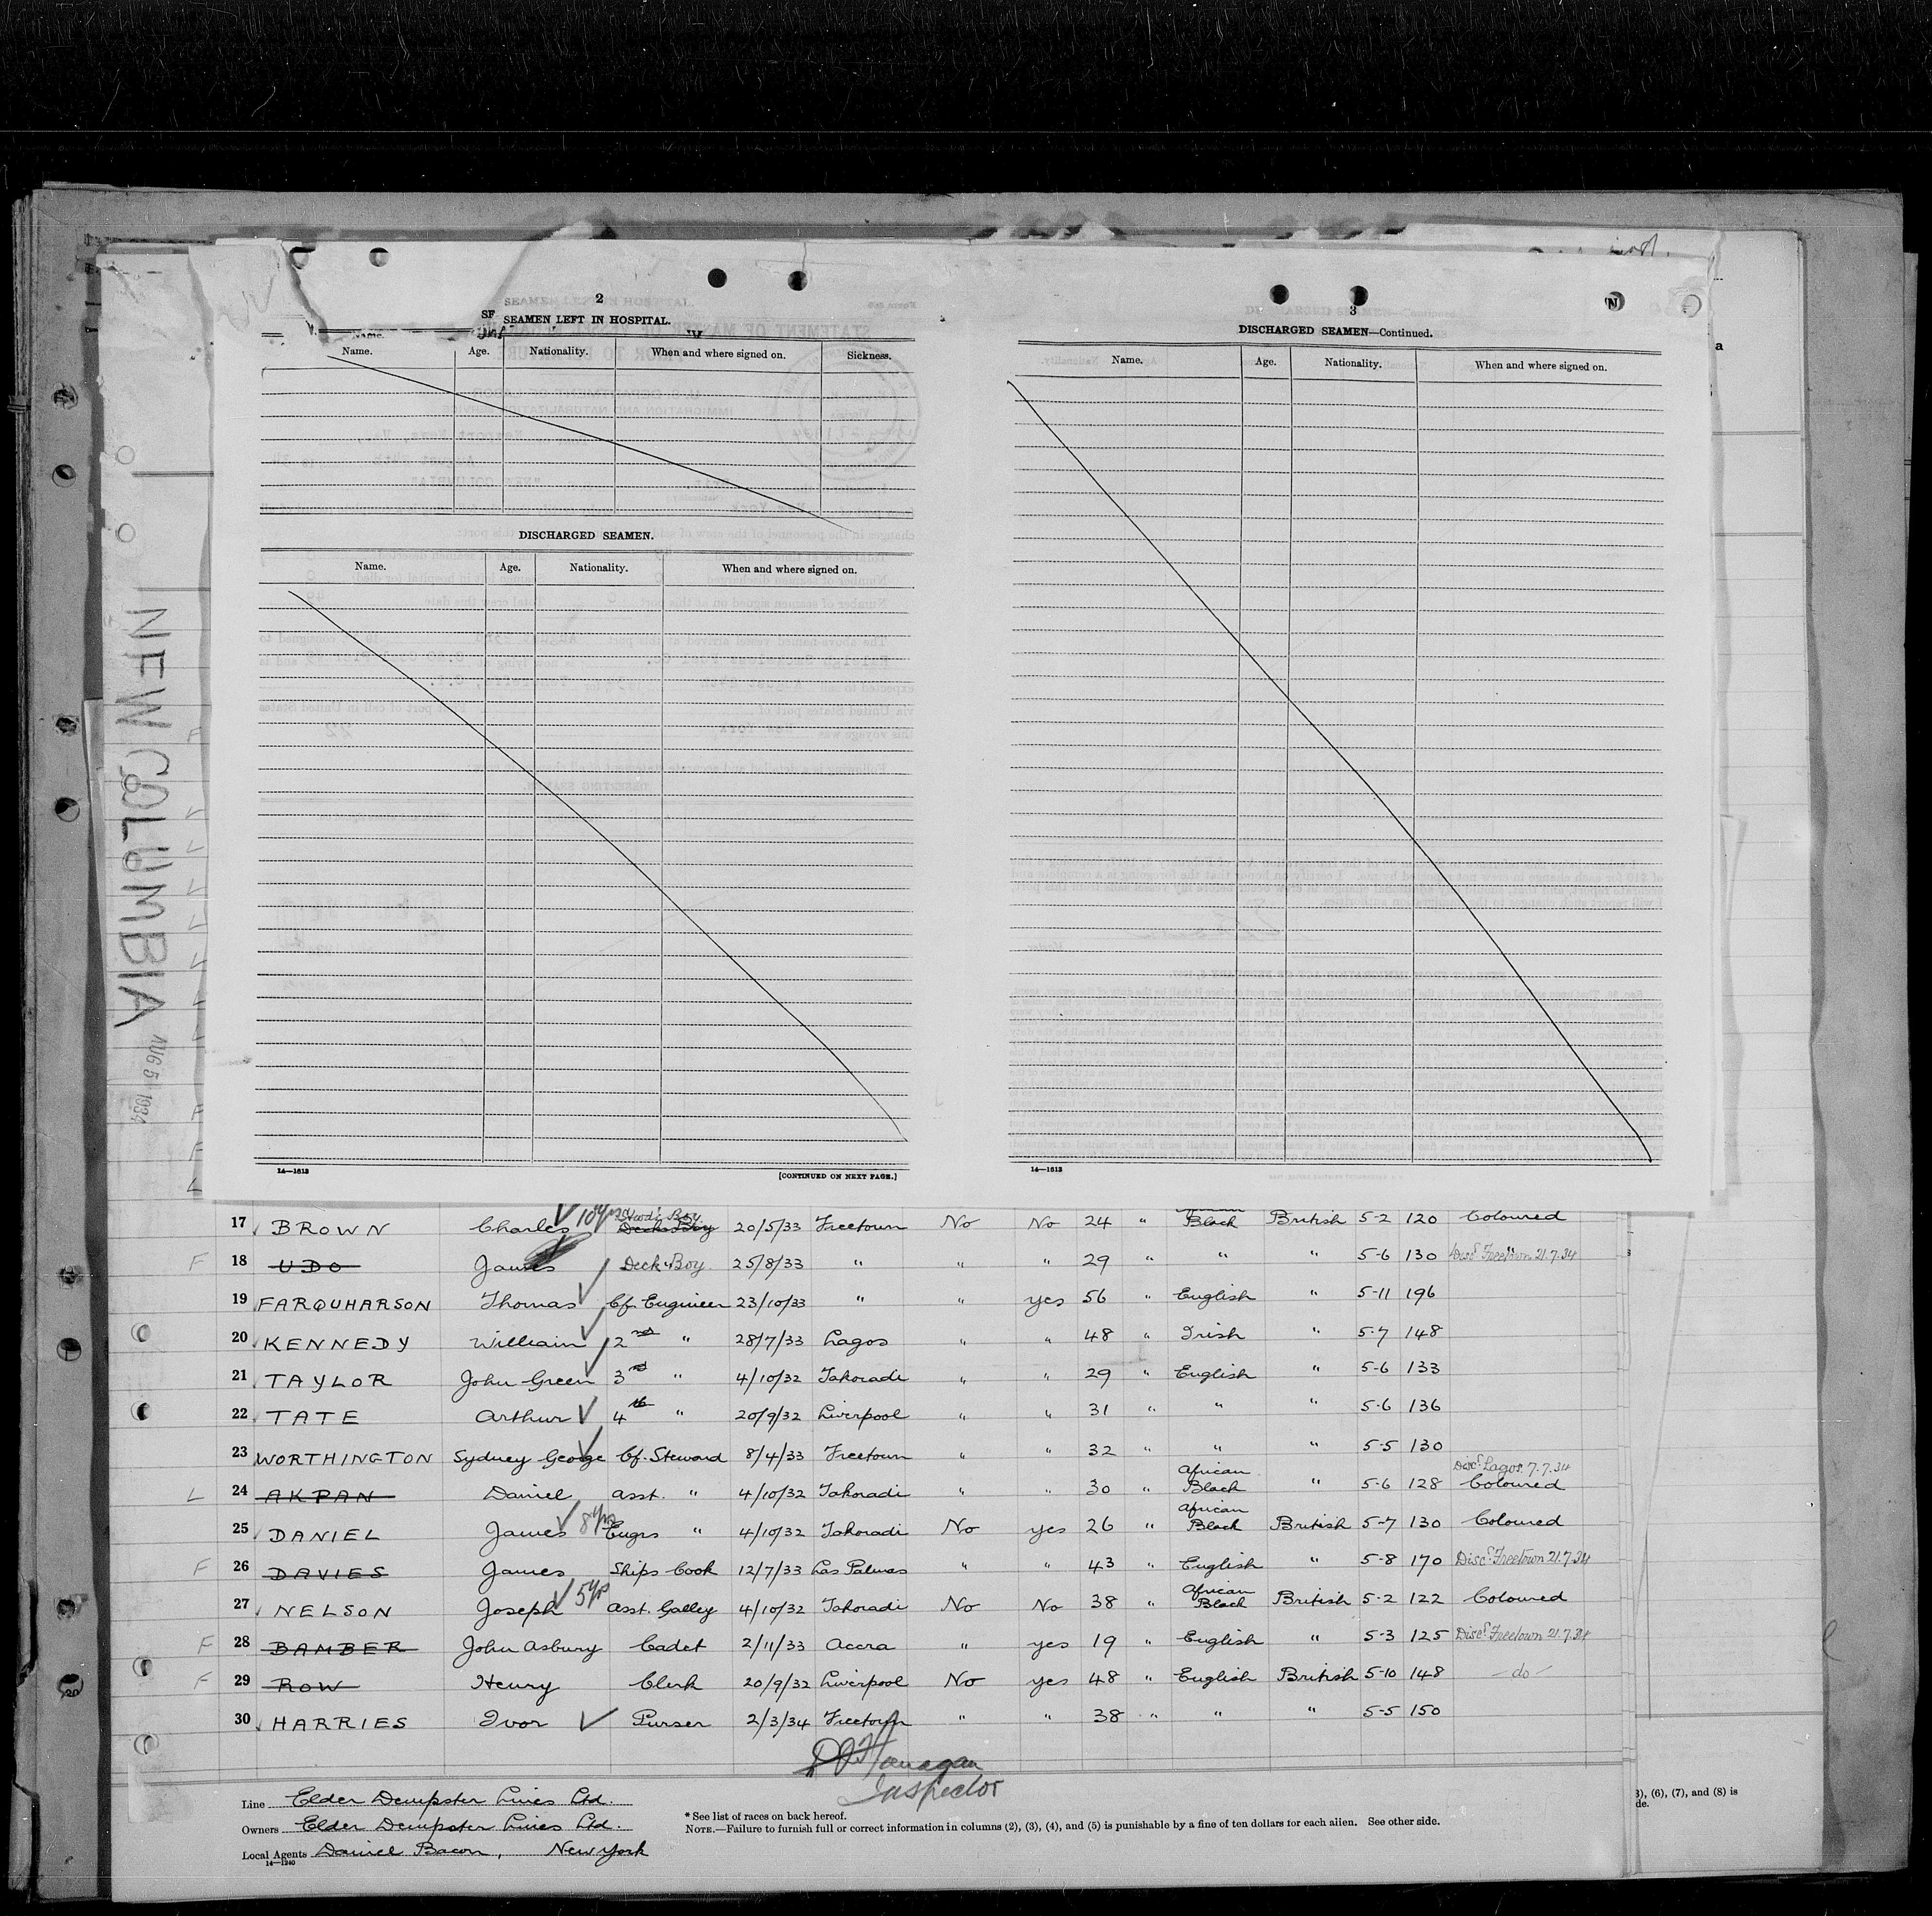 2
SEAMEN LEFT IN HOSPITAL.
Name. Age. Nationality. When and where signed on. Sickness.
DISCHARGED SEAMEN.
Name. Age. Nationality. When and where signed on.
14—1613
[CONTINUED ON NEXT PAGE.]
3
DISCHARGED SEAMEN—Continued.
Name. Age. Nationality. When and where signed on.
14—1613
N
NEW COLUMBIA
AUG 5 1934
17 BROWN Charles 10 yrs Deck Boy 20/5/33 Freetown No No 24 " Black British 5-2 120 Coloured
F 18 UDO James Deck Boy 25/8/33 " " " 29 " " " 5-6 130 Disc. Freetown 21.7.34
19 FARQUHARSON Thomas Cf. Engineer 23/10/33 " " yes 56 " English " 5-11 196
20 KENNEDY William 2nd " 28/7/33 Lagos " " 48 " Irish " 5-7 148
21 TAYLOR John Green 3rd " 4/10/32 Takoradi " " 29 " English " 5-6 133
22 TATE Arthur 4th " 20/9/32 Liverpool " " 31 " " " 5-6 136
23 WORTHINGTON Sydney George Cf. Steward 8/4/33 Freetown " " 32 " " " 5-5 130
L 24 AKPAN Daniel asst. " 4/10/32 Takoradi " " 30 " African Black " 5-6 128 Disc. Lagos 7.7.34 Coloured
25 DANIEL James 8 yrs Engrs " 4/10/32 Takoradi No yes 26 " African Black British 5-7 130 Coloured
F 26 DAVIES James Ships Cook 12/7/33 Las Palmas " " 43 " English " 5-8 170 Disc. Freetown 21.7.34
27 NELSON Joseph 5 yrs asst. Galley 4/10/32 Takoradi No No 38 " African Black British 5-2 122 Coloured
F 28 BAMBER John Asbury Cadet 2/11/33 Accra " yes 19 " English " 5-3 125 Disc. Freetown 21.7.34
F 29 ROW Henry Clerk 20/9/32 Liverpool No yes 48 " English British 5-10 148 —do—
30 HARRIES Ivor Purser 2/3/34 Freetown " " 38 " " " 5-5 150
Inspector
Line Elder Dempster Lines Ltd.
Owners Elder Dempster Lines Ltd.
Local Agents Daniel Bacon, New York
14—1240
* See list of races on back hereof.
NOTE.—Failure to furnish full or correct information in columns (2), (3), (4), and (5) is punishable by a fine of ten dollars for each alien. See other side.
(6), (7), and (8) is
de.